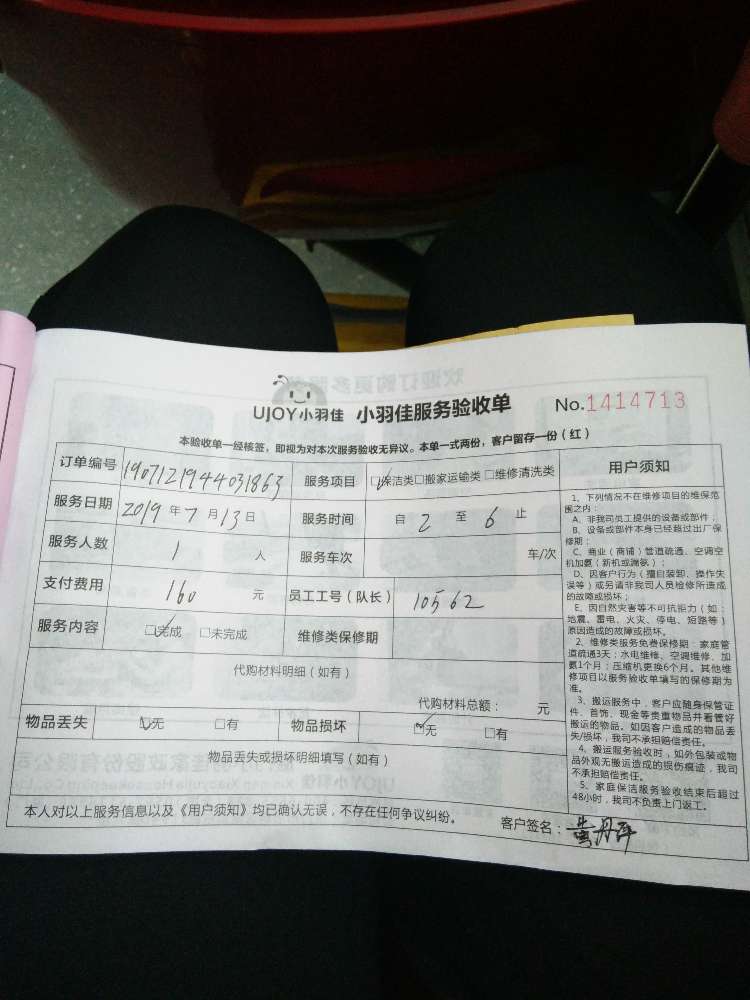 UJOY小羽佳 小羽佳服务验收单 No.1414713
本验收单一经核签，即视为对本次服务验收无异议。本单一式两份，客户留存一份（红）
订单编号 1907121944031863 服务项目 ☑保洁类□搬家运输类□维修清洗类
服务日期 2019年7月13日 服务时间 自 2 至 6 止
服务人数 1 人 服务车次 车/次
支付费用 160 元 员工工号（队长） 10562
服务内容 ☑完成 □未完成 维修类保修期
代购材料明细（如有）
代购材料总额： 元
物品丢失 ☑无 □有 物品损坏 ☑无 □有
物品丢失或损坏明细填写（如有）
本人对以上服务信息以及《用户须知》均已确认无误，不存在任何争议纠纷。 客户签名：
用户须知
1、下列情况不在维修项目的维保范
围之内：
A、非我司员工提供的设备或部件；
B、设备或部件本身已经超过出厂保
修期；
C、商业（商铺）管道疏通、空调空
机加氨（新机或漏氨）；
D、因客户行为（擅自装卸、操作失
误等）或另请非我司人员检修所造成
的故障或损坏；
E、因自然灾害等不可抗拒力（如：
地震、雷电、火灾、停电、短路等）
原因造成的故障或损坏。
2、维修类服务免费保修期：家庭管
道疏通3天；水电维修、空调维修、加
氨1个月；压缩机更换6个月。其他维
修项目以服务验收单填写的保修期为
准。
3、搬运服务中，客户应随身保管证
件、首饰、现金等贵重物品并看管好
搬运的物品。如因客户造成的物品丢
失/损坏，我司不承担赔偿责任。
4、搬运服务验收时，如外包装或物
品外观无搬运造成的损伤痕迹，我司
不承担赔偿责任。
5、家庭保洁服务验收结束后超过
48小时，我司不负责上门返工。